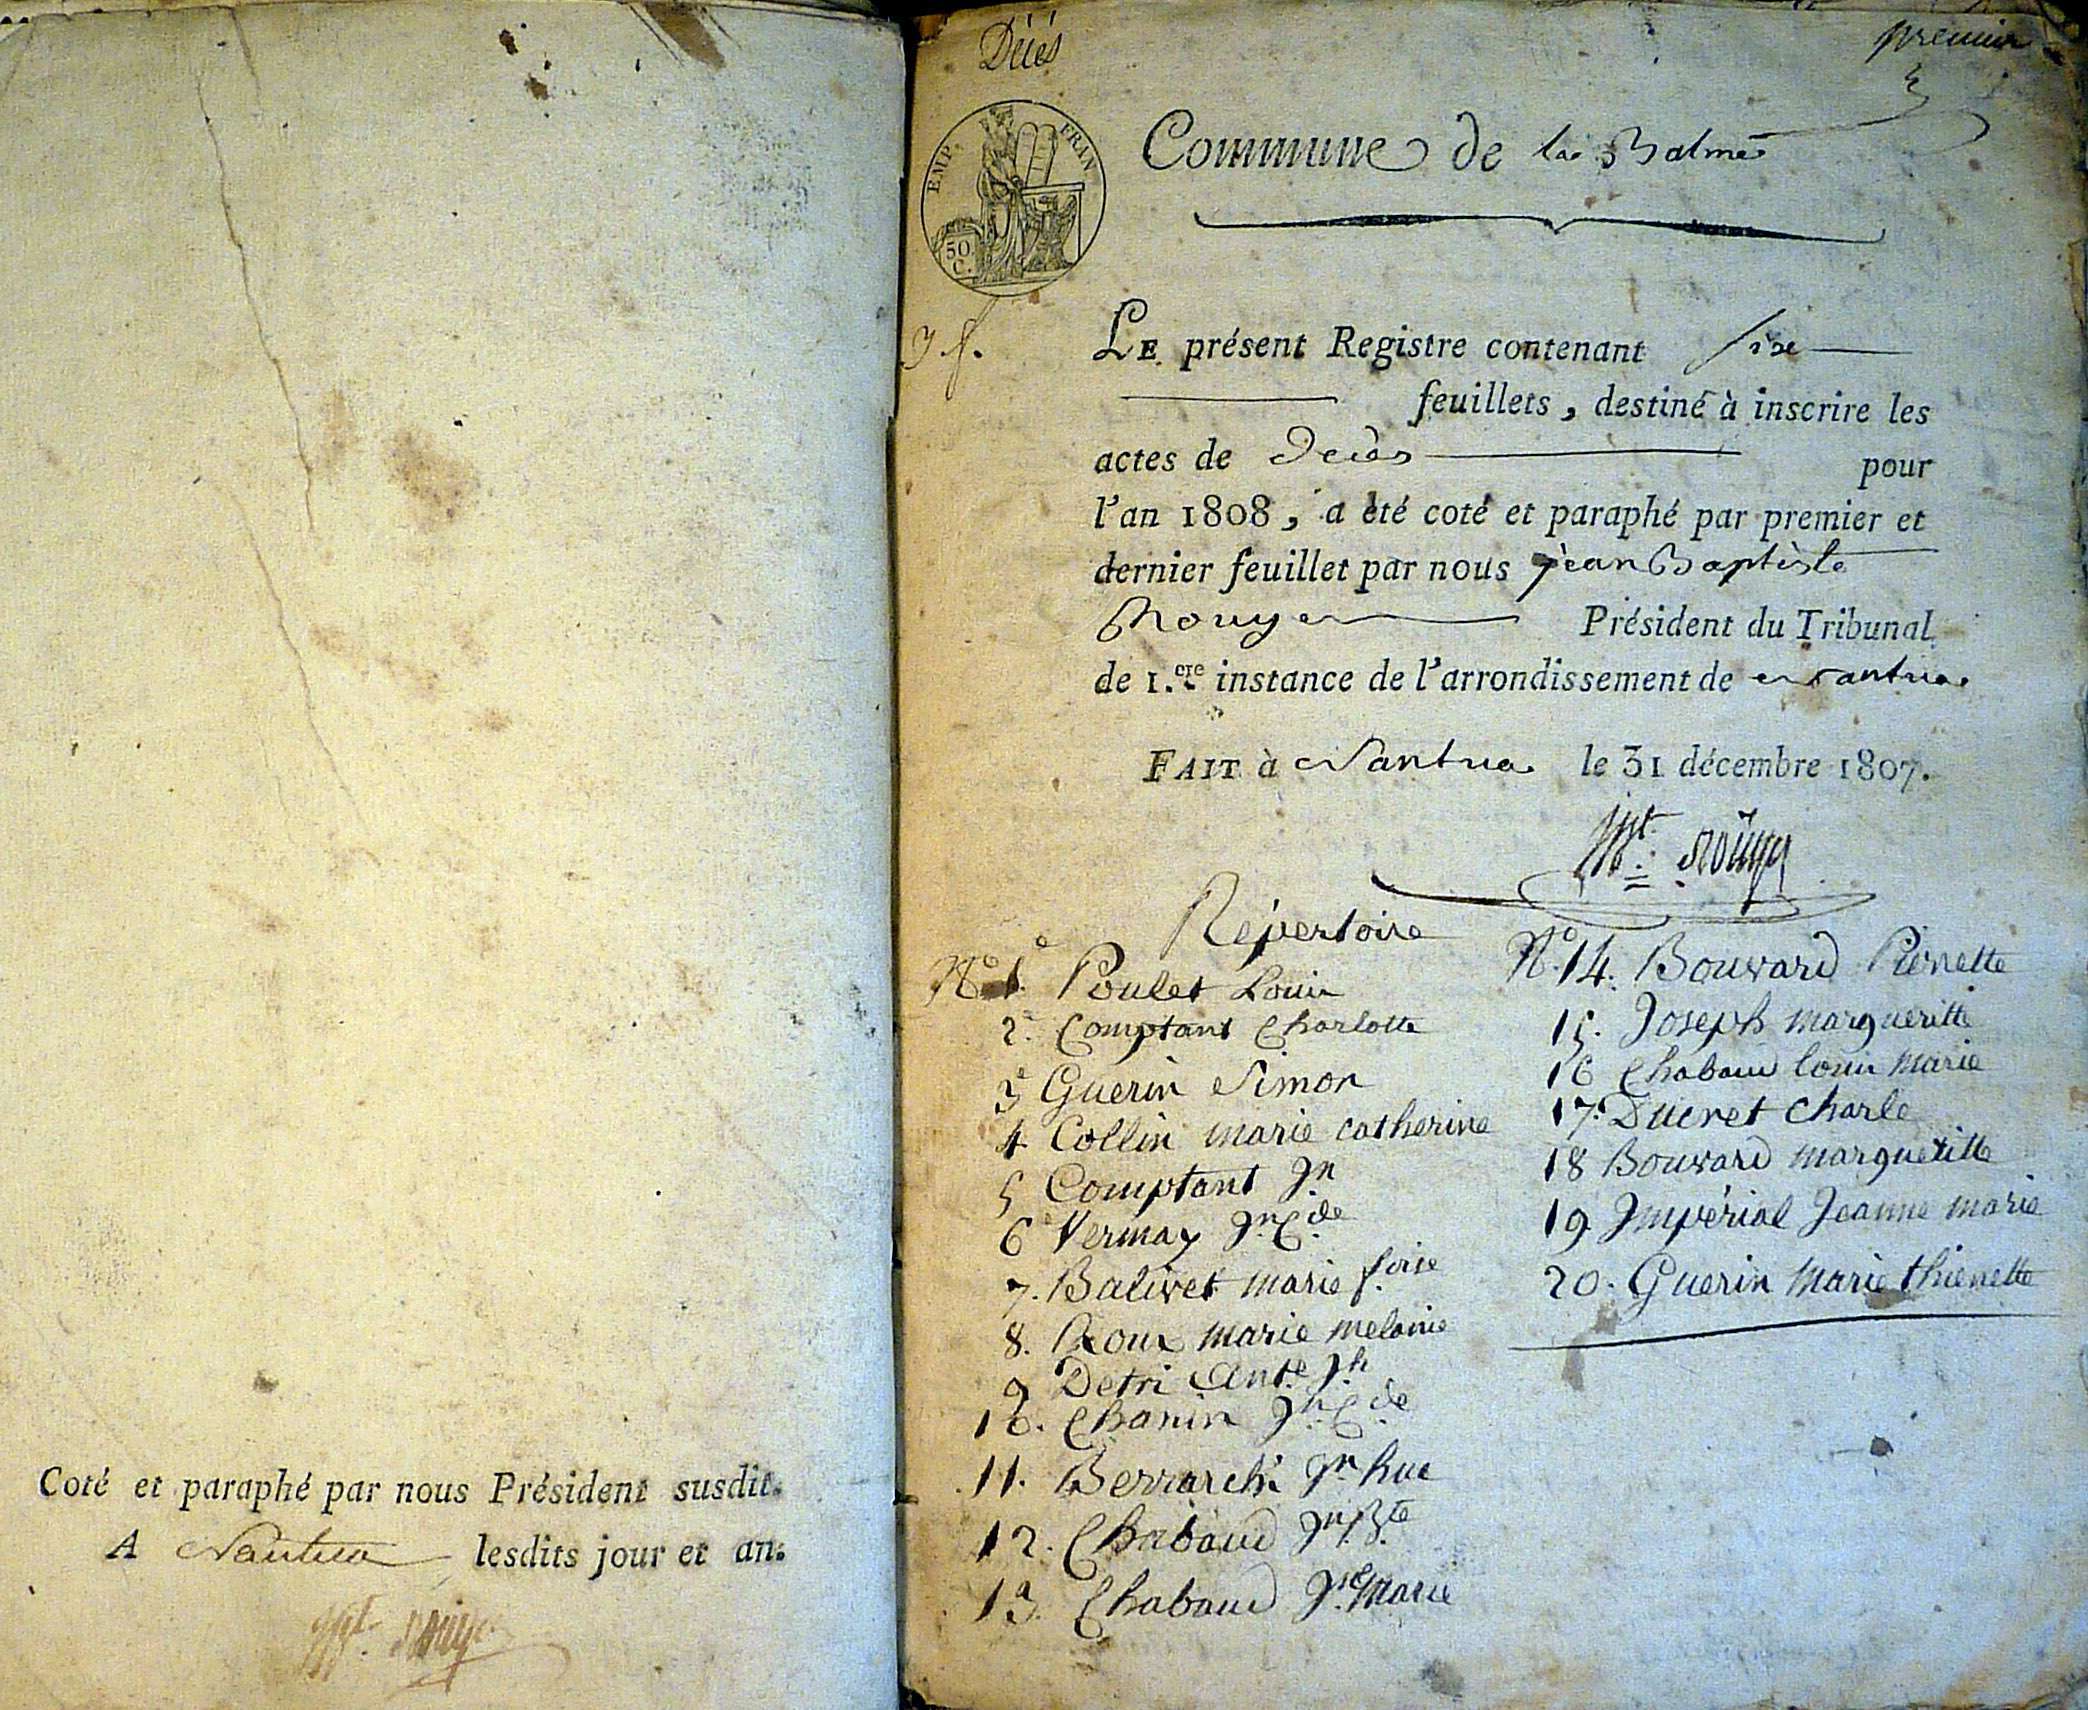 Coté et paraphé par nous Président susdit.
A Nantua lesdits jour et an.
Décès
premier
EMP. FRAN
50
C.
Commune de la Balme
3 f.
LE présent Registre contenant six
feuillets, destiné à inscrire les
actes de Décès pour
l'an 1808, a été coté et paraphé par premier et
dernier feuillet par nous jean Baptiste
Rouyer Président du Tribunal
de 1.ere instance de l'arrondissement de Nantua
FAIT à Nantua le 31 décembre 1807.
Répertoire
N.o 1. Poulet Louis
2. Comptant Charlotte
3 Guerin Simon
4 Collin marie catherine
5 Comptant Jn
6 Vermay Jn. C.de
7. Balivet marie f.oise
8. Roux marie melanie
9 Detri Ant.e J.h
10. Chanin Jh. C.de
11. Berrarchi Jn hue
12. Chabaud Jn. B.te
13. Chabaud J.ne Marie
N.o 14. Bouvard Pierrette
15. Joseph margueritte
16 Chabaud louis Marie
17. Ducret charle
18 Bouvard margueritte
19. Impérial Jeanne marie
20. Guerin Marie thienette